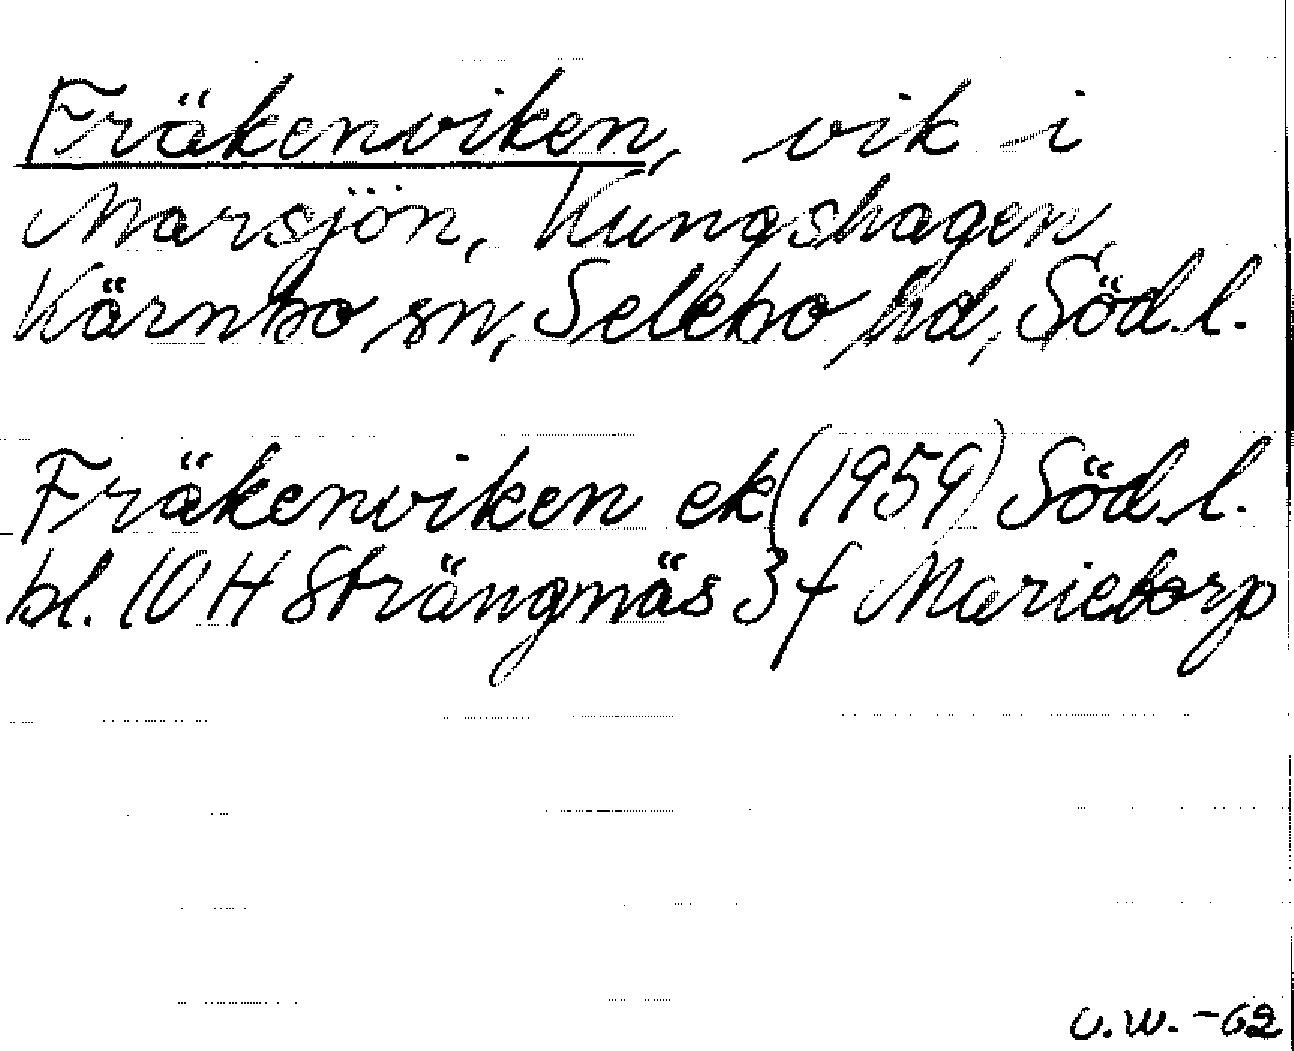 Fräkenviken, vik i
Marsjön, Kungshagen,
Kärnbo sn, Selebo hd, Söd.l.
Fräkenviken ek (1959) Söd.l.
bl. 10 H Strängnäs 3 f Marietorp
U.W. -62